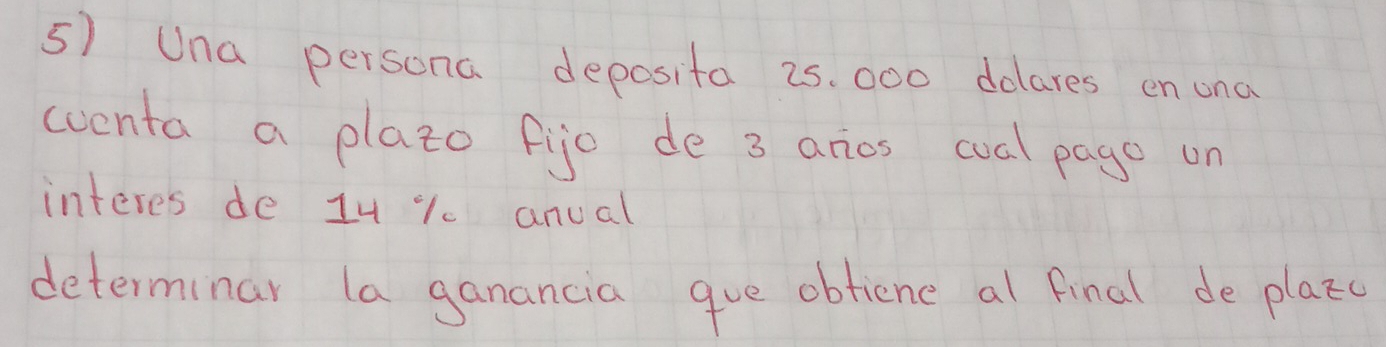 5) Una persona deposita 25.000 dolares en una
cuenta a plazo fijo de 3 años cual pago un
interes de 14 % anual
determinar la ganancia que obtiene al final de plazo